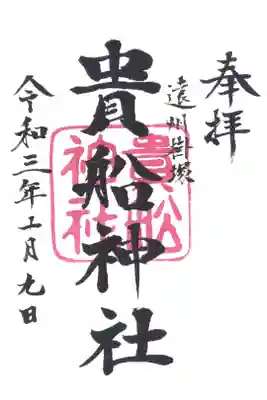 奉拝
遠州掛塚
貴船神社
貴船
神社
令和三年一月九日